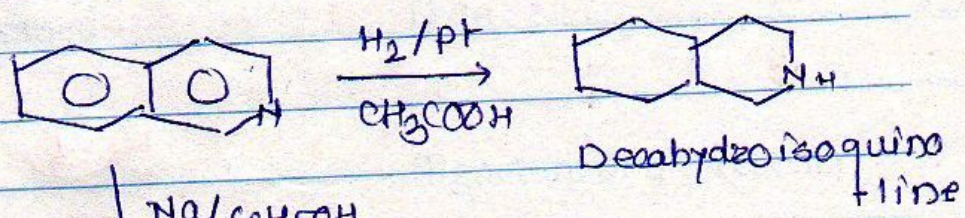 H₂/Pt
CH₃COOH
N
NH
Decahydroisoquino
line
Na/C₂H₅OH